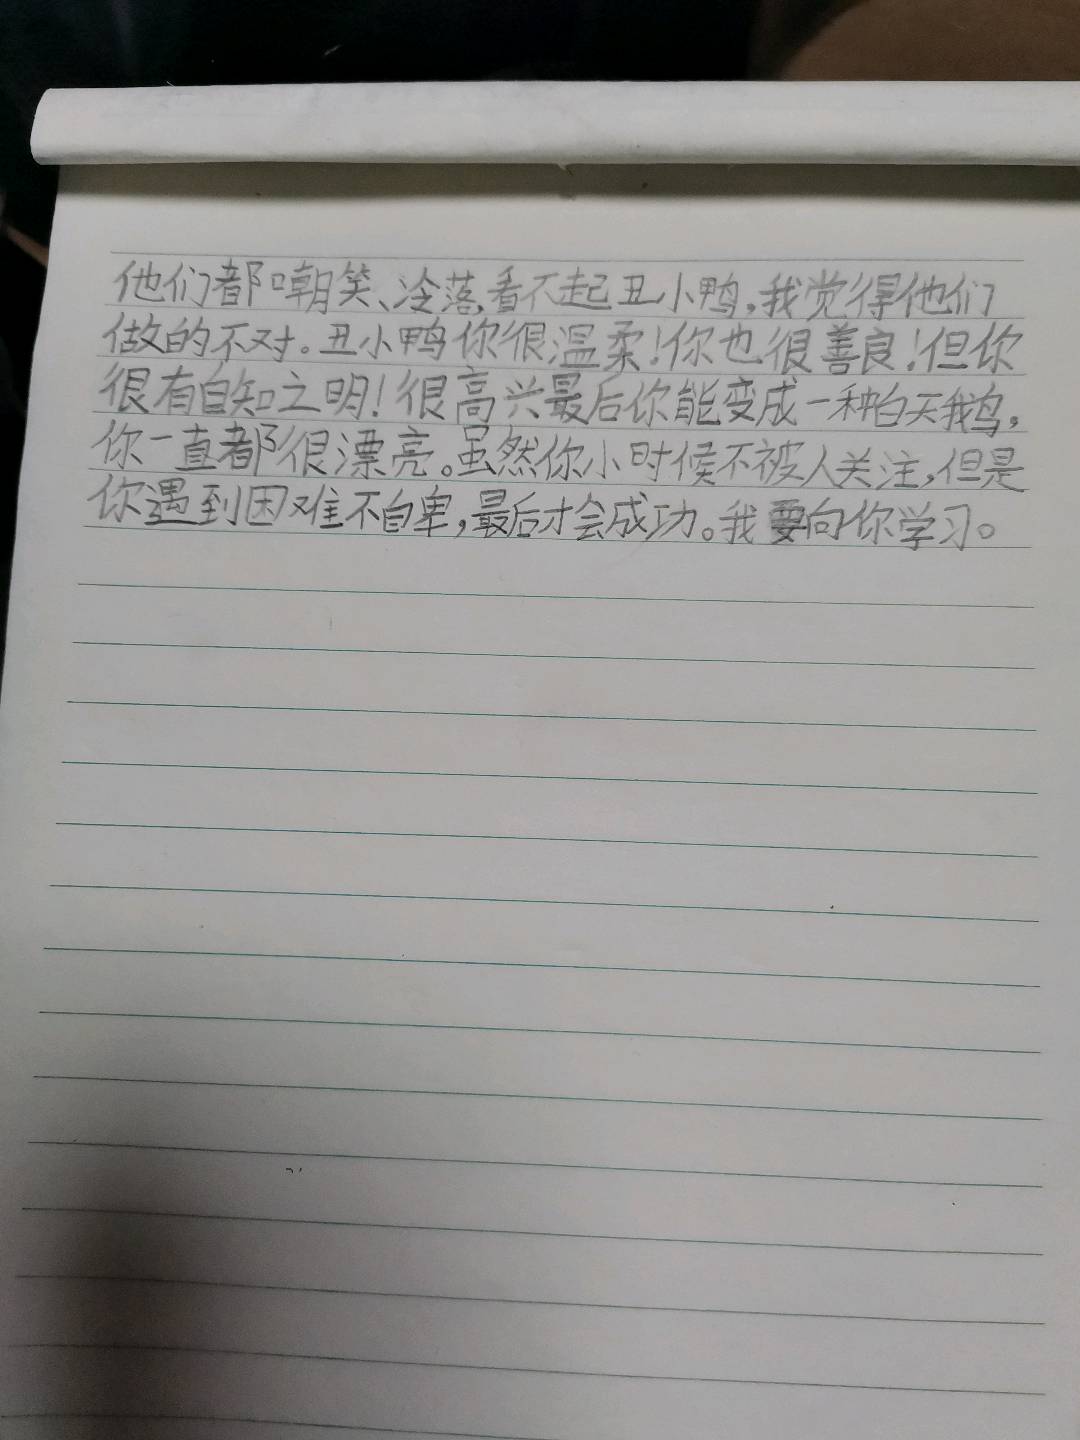 他们都嘲笑、冷落,看不起丑小鸭,我觉得他们
做的不对。丑小鸭你很温柔!你也很善良!但你
很有自知之明!很高兴最后你能变成一种白天鹅,
你一直都很漂亮。虽然你小时候不被人关注,但是
你遇到困难不自卑,最后才会成功。我要向你学习。